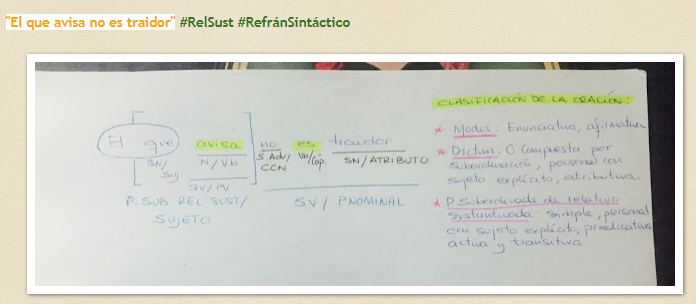 "El que avisa no es traidor" #RelSust #RefránSintáctico
CLASIFICACIÓN DE LA ORACIÓN:
El que avisa no es traidor
SN/Suj N/Vb S Adv/CCN Vb/Cóp. SN/ATRIBUTO
SV/PV
P. SUB REL SUST/SUJETO SV/PNOMINAL
* Modus: Enunciativa, afirmativa
* Dictum: O Compuesta por
subordinación, personal con
sujeto explícito, atributiva.
* P. Subordinada de relativo
sustantivada: simple, personal
con sujeto explícito, predicativa
activa y transitiva